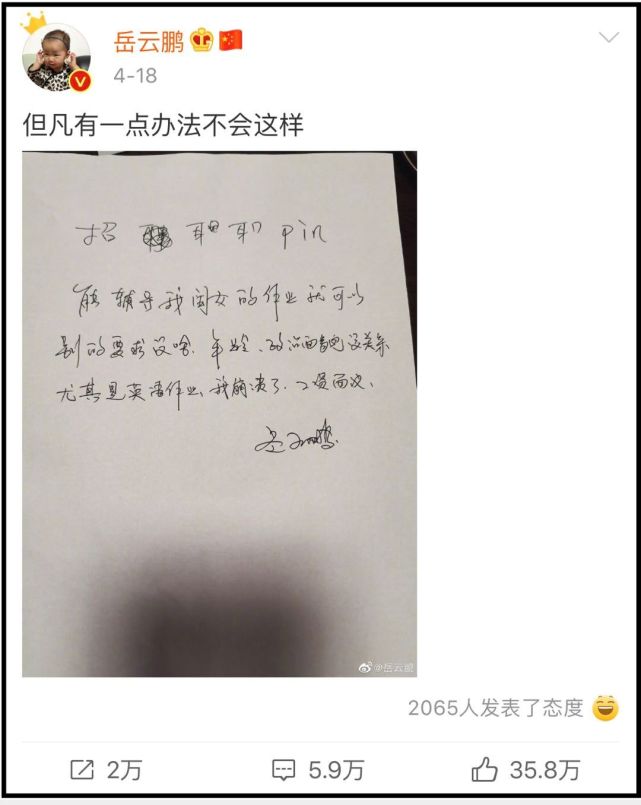 岳云鹏
4-18
但凡有一点办法不会这样
招 耵职 Pin
能辅导我闺女的作业就可以
别的要求没啥.年龄、政治面貌没关系
尤其是英语作业、我崩溃了.工资面议、
岳云鹏
@岳云鹏
2065人发表了态度
2万
5.9万
35.8万